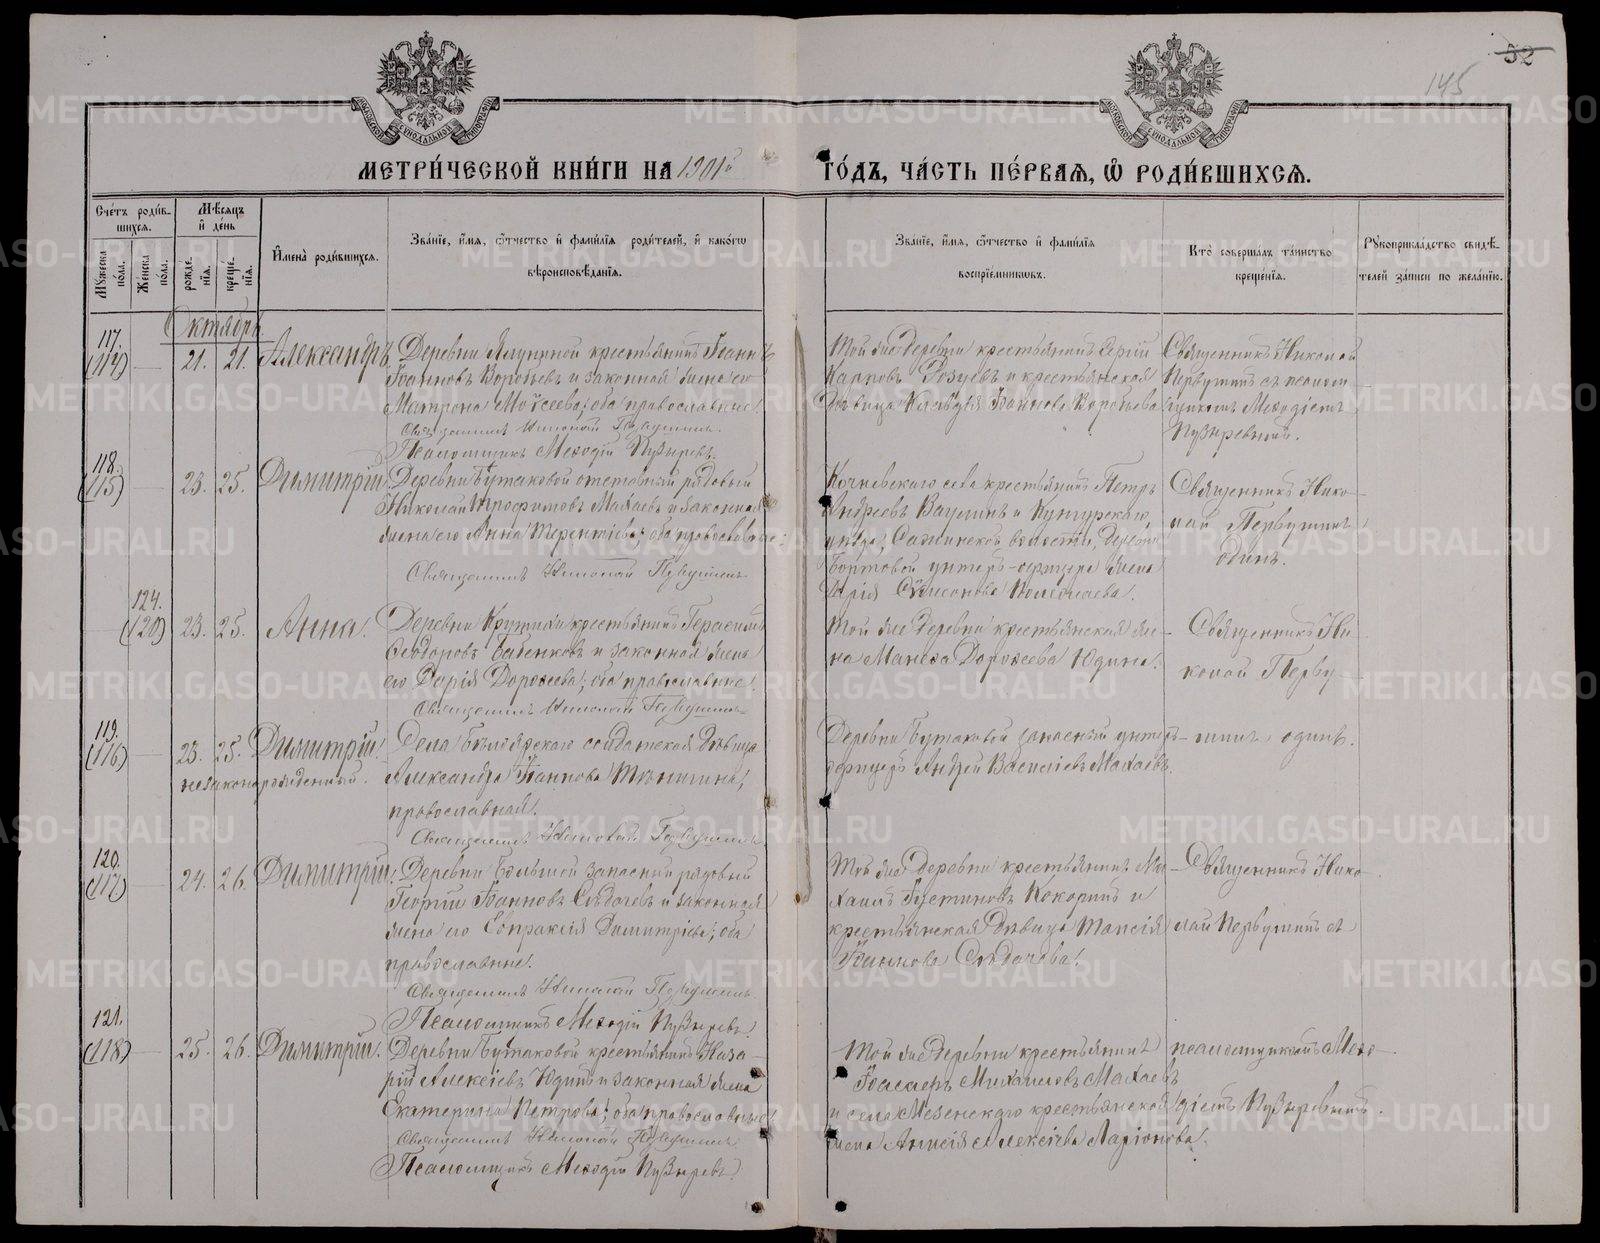 52
145
МЕТРИ́ЧЕСКОЙ КНИ́ГИ НА 1901й ГО́ДЪ, ЧА́СТЬ ПЕ́РВАЯ, Ѽ РОДИ́ВШИХСЯ.
Сче́тъ роди́в-
шихся.
Мѣ́сяцъ
и҆ де́нь
Мꙋ́жеска по́ла.
Же́нска по́ла.
рожде́-
нїѧ.
креще́-
нїѧ.
И҆мена̀ роди́вшихся.
Зва́нїе, и҆́мя, ѻ҆́тчество и҆ фами́лїя роди́телей, и҆ како́гѡ
вѣроисповѣ́данїя.
Зва́нїе, и҆́мя, ѻ҆́тчество и҆ фами́лїя
воспрїе́мниковъ.
Кто̀ соверша́лъ та́инство
креще́нїя.
Рꙋкоприкла́дство свидѣ́-
телей за́писи по жела́нїю.
Октябрь.
117.
(114) — 21. 21. Александръ
Деревни Ялуниной крестьянинъ Іоаннъ
Іоанновъ Воробьевъ и законная жена его
Матрона Моѵсеева; оба православные.
Священникъ Николай Первушинъ.
Псаломщикъ Меѳодій Пузыревъ.
Той же деревни крестьянинъ Сергій
Карповъ и крестьянская
дѣвица Клавдія Іоаннова Воробьева
Священникъ Николай
Первушинъ съ псалом-
щикомъ Меѳодіемъ
Пузыревымъ.
118.
(115) — 23. 25. Димитрій.
Деревни Бутаковой отставный рядовый
Николай Трофимовъ Махаевъ и законная
жена его Анна Терентіева; оба православные.
Священникъ Николай Первушинъ
Кочневскаго села крестьянинъ Петръ
Андреевъ Ваулинъ и Кунгурскаго
уѣзда, Сажинской волости, деревни
унтеръ-офицера жена
Дарія Симеонова
Священникъ Нико-
лай Первушинъ
одинъ.
124.
— (120) 23. 25. Анна.
Деревни Крутихи крестьянинъ Герасимъ
Ѳеодоровъ Бабенковъ и законная жена
его Дарія Дороѳеева; оба православные.
Священникъ Николай Первушинъ
Той же деревни крестьянская же-
на Манеѳа Дороѳеева Юдина.
Священникъ Ни-
колай Перву-
119.
(116) — 23. 25. Димитрій.
незаконорожденный.
Села Бѣлоярскаго солдатская дѣвица
Александра Іоаннова
православная.
Священникъ Николай Первушинъ
Деревни Бутаковой запасный унтеръ-
офицеръ Андрей Василіевъ Махаевъ.
шинъ одинъ.
120.
(117) — 24. 26. Димитрій.
Деревни Большой запасный рядовый
Георгій Іоанновъ Сѣдачевъ и законная
жена его Евпраксія Димитріева; оба
православные.
Священникъ Николай Первушинъ
Псаломщикъ Меѳодій Пузыревъ
Той же деревни крестьянинъ Ми-
хаилъ Іустиновъ Кокоринъ и
крестьянская дѣвица Таисія
Іоаннова Сѣдачева.
Священникъ Нико-
лай Первушинъ съ
121.
(118) — 25. 26. Димитрій.
Деревни Бутаковой крестьянинъ Наза-
рій Алексіевъ Юдинъ и законная жена
Екатерина Петрова; оба православные.
Священникъ Николай Первушинъ
Псаломщикъ Меѳодій Пузыревъ
Той же деревни крестьянинъ
Михаиловъ Махаевъ
и села Мезенскаго крестьянской
жена Анисія Алексіева Ларіонова.
псаломщикомъ Меѳо-
діемъ Пузыревымъ.